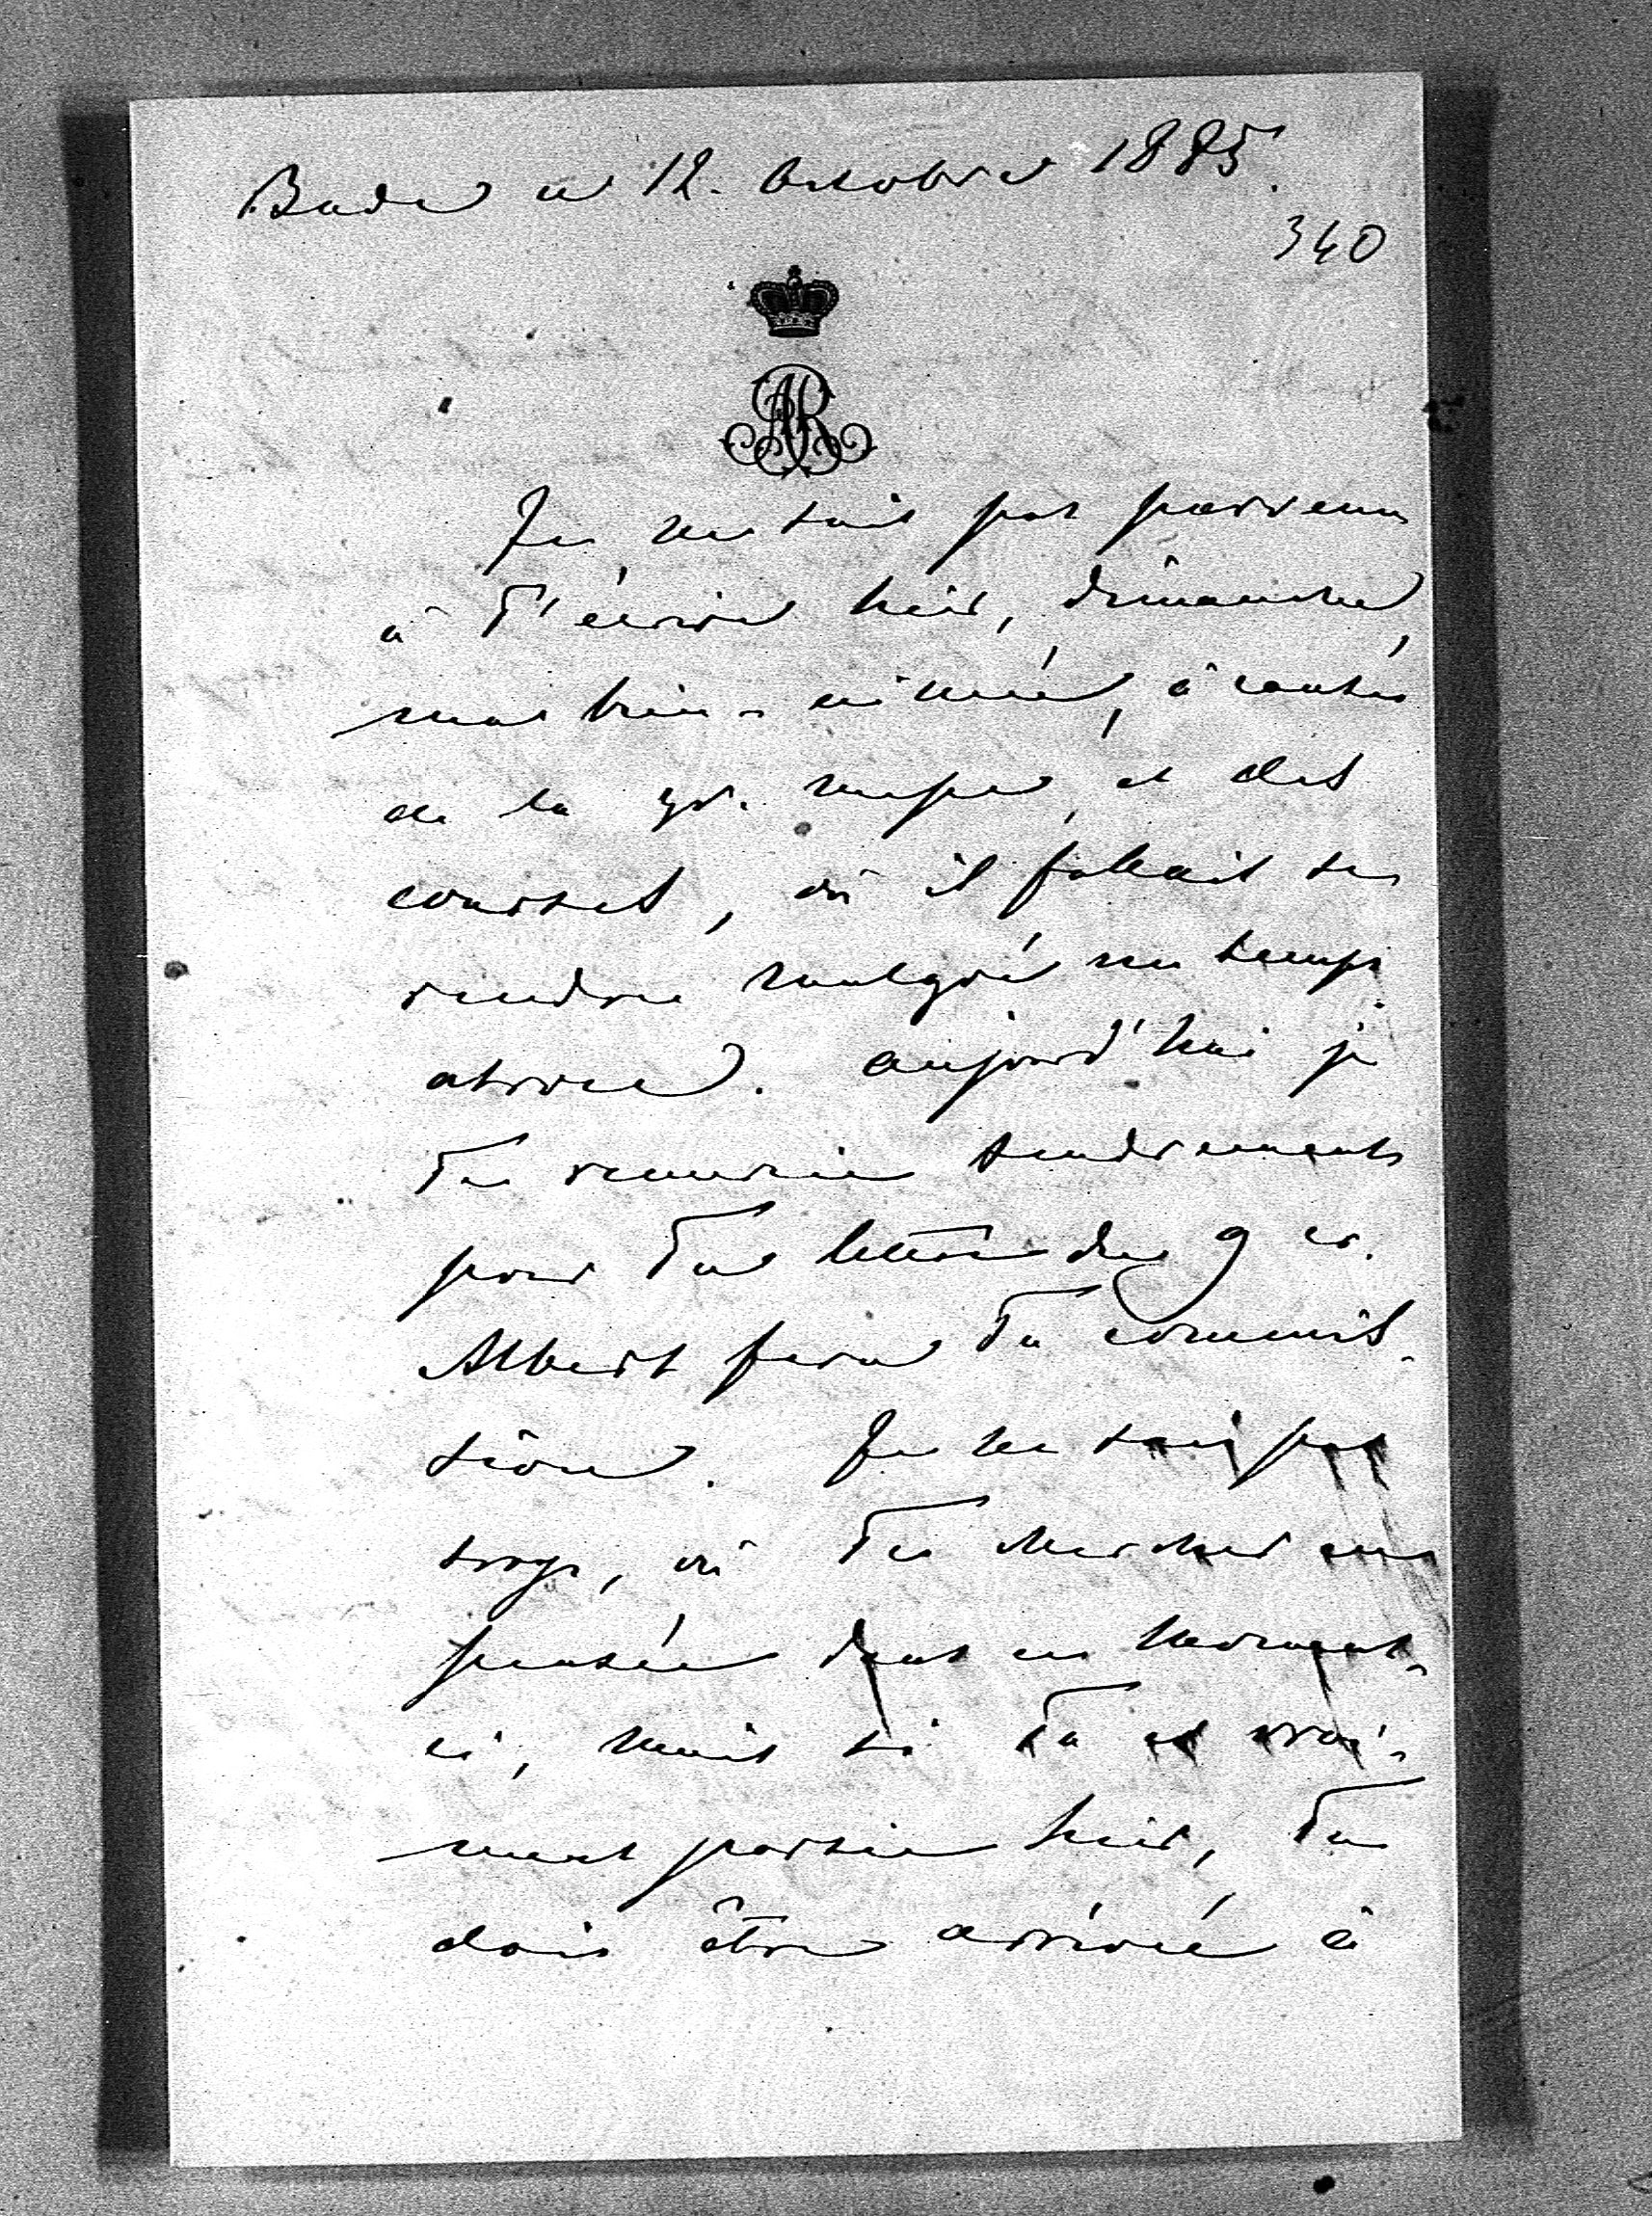 Bade ce 12. Octobre 1885.
340
AR
Je ne suis pas parvenu
à T'écrire hier, dimanche,
ma bien-aimée, à cause
de la gr. messe, et des
courses, où il fallait se
rendre malgré un temps
atroce. Aujourd'hui je
Te remercie tendrement
pour Ta lettre du 9 cr.
Albert fera Ta commis-
sion. Je ne sais pas
trop, où Te chercher en
pensée dans ce moment-
ci, mais si Tu es vrai-
ment partie hier, Tu
dois être arrivée à